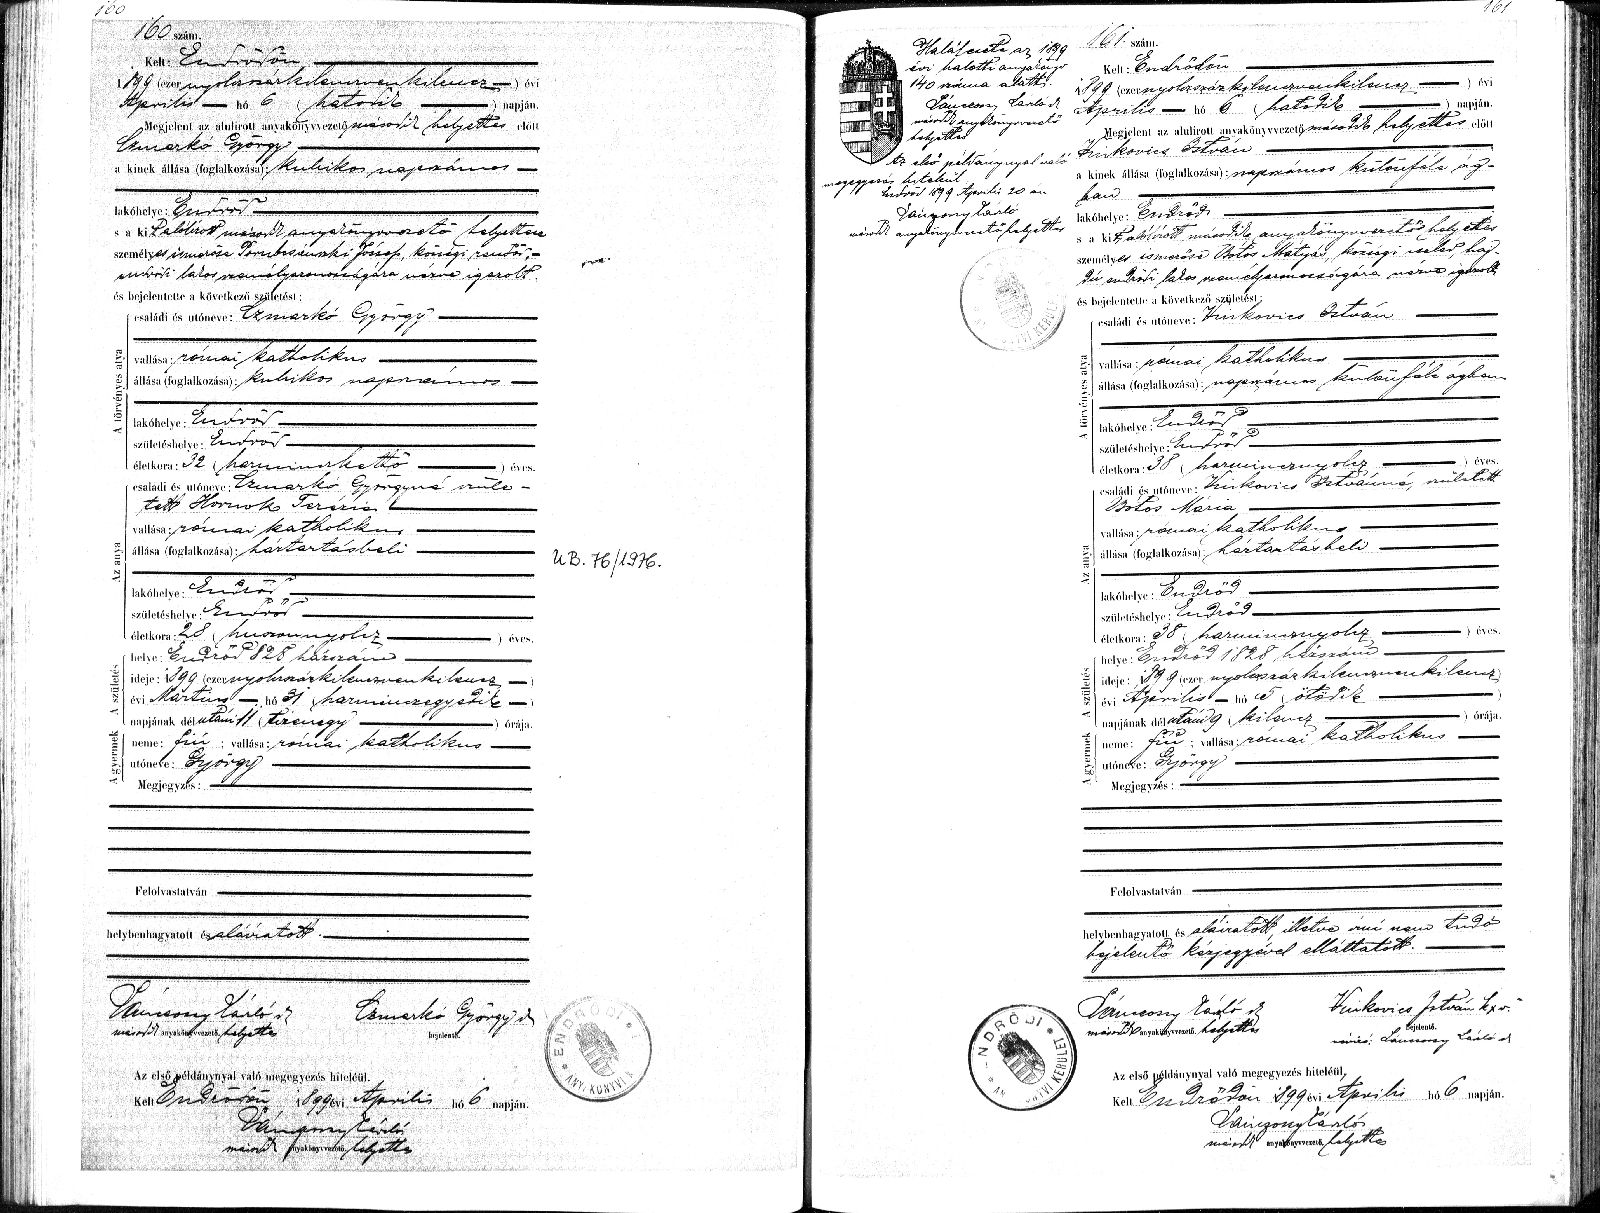 160
160 szám.
Kelt: Endrődön
1899 (ezernyolczszázkilenczvenkilencz) évi
Április hó 6 (hatodik) napján.
Megjelent az alulirott anyakönyvvezető második helyettes előtt
Czmarkó György
a kinek állása (foglalkozása): kubikos napszámos
lakóhelye: Endrőd
s a kit alólirott második anyakönyvvezető helyettes
személyes ismerőse József, községi rendőr,
endrődi lakos személyazonosságára nézve igazolt
és bejelentette a következő születést:
A törvényes atya
családi és utóneve: Czmarkó György
vallása: római katholikus
állása (foglalkozása): kubikos napszámos
lakóhelye: Endrőd
születéshelye: Endrőd
életkora: 32 (harminczkettő) éves.
Az anya
családi és utóneve: Czmarkó Györgyné szüle-
tett Hornok Terézia
vallása: római katholikus
állása (foglalkozása): háztartásbeli
lakóhelye: Endrőd
születéshelye: Endrőd
életkora: 28 (huszonnyolcz) éves.
A születés
helye: Endrőd 828 házszám
ideje: 1899 (ezernyolczszázkilenczvenkilencz)
évi Martius hó 31 (harminczegyedik)
napjának délutáni 11 (tizenegy) órája.
A gyermek
neme: fiú; vallása: római katholikus
utóneve: György
Megjegyzés:
Felolvastatván
helybenhagyatott és aláiratott.
László
második anyakönyvvezető, helyettes
Czmarkó György
bejelentő.
Az első példánynyal való megegyezés hiteléül.
Kelt Endrődön 1899 évi Április hó 6 napján.
László
második anyakönyvvezető, helyettes
ENDRŐDI
ANYAKÖNYVI K
UB. 76/1976.
161
161. szám.
Halálesete az 1899
évi halotti anyakönyv
140 száma alatt.
László
második anyakönyvvezető
helyettes
Az első példánynyal való
megegyezés hiteléül
Endrőd 1899 Április 20 án
László
második anyakönyvvezető helyettes
Kelt: Endrődön
1899 (ezernyolczszázkilenczvenkilencz) évi
Április hó 6 (hatodik) napján.
Megjelent az alulirott anyakönyvvezető második helyettes előtt
István
a kinek állása (foglalkozása): napszámos különféle ág-
ban
lakóhelye: Endrőd
s a kit alólirott második anyakönyvvezető helyettes
személyes ismerőse Botos Mátyás, községi
endrődi lakos személyazonosságára nézve igazolt
és bejelentette a következő születést:
A törvényes atya
családi és utóneve: István
vallása: római katholikus
állása (foglalkozása): napszámos különféle ágban
lakóhelye: Endrőd
születéshelye: Endrőd
életkora: 38 (harmincznyolcz) éves.
Az anya
családi és utóneve: Istvánné, született
Botos Mária
vallása: római katholikus
állása (foglalkozása): háztartásbeli
lakóhelye: Endrőd
születéshelye: Endrőd
életkora: 38 (harmincznyolcz) éves.
A születés
helye: Endrőd 1828 házszám
ideje: 1899 (ezernyolczszázkilenczvenkilencz)
évi Április hó 5 (ötödik)
napjának délutáni 9 (kilencz) órája.
A gyermek
neme: fiú; vallása: római katholikus
utóneve: György
Megjegyzés:
Felolvastatván
helybenhagyatott és aláiratott, illetve irni nem tudó
bejelentő kézjegyével elláttatott.
László
második anyakönyvvezető, helyettes
István
bejelentő.
László
Az első példánynyal való megegyezés hiteléül,
Kelt Endrődön 1899 évi Április hó 6 napján.
László
második anyakönyvvezető, helyettes
NDRŐDI
VI KERÜLET